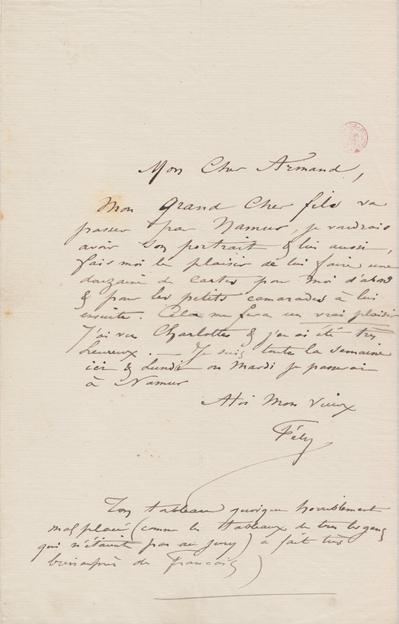 Mon Cher Armand,
Mon grand Cher fils va
passer par Namur, je voudrais
avoir son portrait & lui aussi,
fais moi le plaisir de lui faire une
douzaine de cartes pour moi d'abord
& pour les petits camarades à lui
ensuite. Cela me fera un vrai plaisir
J'ai vu Charlotte & j'en ai été très
heureux. — Je suis toute la semaine
ici & Lundi ou Mardi je passerai
à Namur
A toi Mon Vieux
Fély
Ton tableau quoique horriblement
mal placé (comme les tableaux de tous les gens
qui n'étaient pas au jury) a fait très
de Francois)